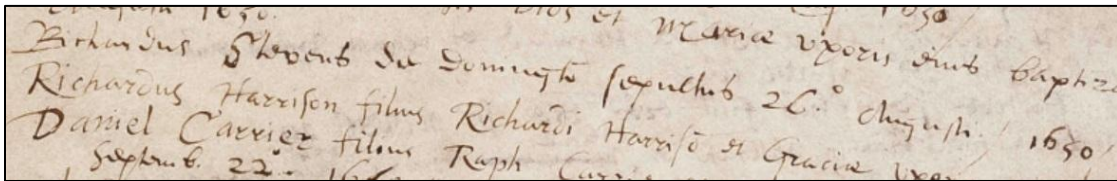 1650.
et Mariæ vxoris eius baptiz
Richardus Stevens de sepultus 26.° Augusti. 1650
Richardus Harrison filius Richardi Harrisō et Graciæ vxor
Daniel Carrier filius Raph Carrie
Septemb. 22°.